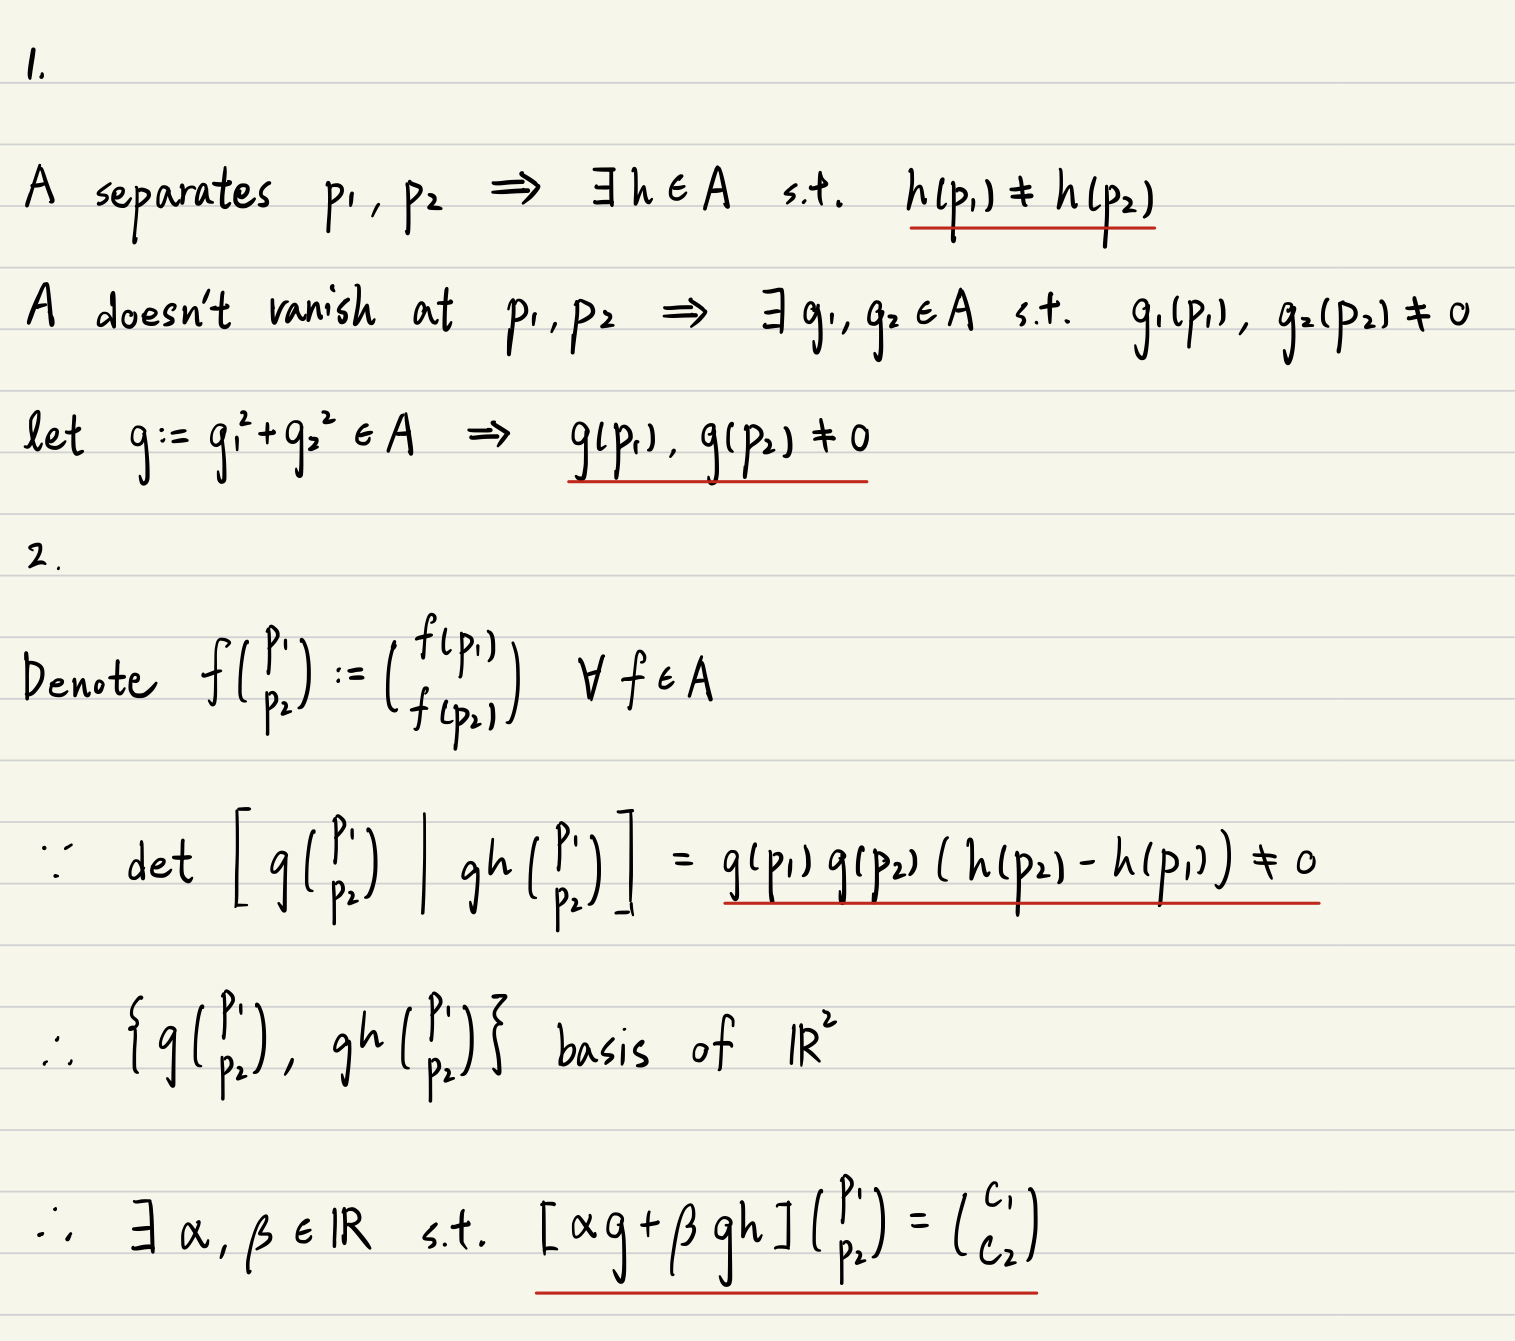 1.
A separates p₁, p₂ ⇒ ∃ h ∈ A s.t. h(p₁) ≠ h(p₂)
A doesn't vanish at p₁, p₂ ⇒ ∃ g₁, g₂ ∈ A s.t. g₁(p₁), g₂(p₂) ≠ 0
let g := g₁² + g₂² ∈ A ⇒ g(p₁), g(p₂) ≠ 0
2.
Denote f(p₁ p₂) := (f(p₁) f(p₂)) ∀ f ∈ A
∵ det [ g(p₁ p₂) | gh(p₁ p₂) ] = g(p₁) g(p₂) ( h(p₂) - h(p₁) ) ≠ 0
∴ { g(p₁ p₂), gh(p₁ p₂) } basis of ℝ²
∴ ∃ α, β ∈ ℝ s.t. [ αg + β gh ](p₁ p₂) = (c₁ c₂)